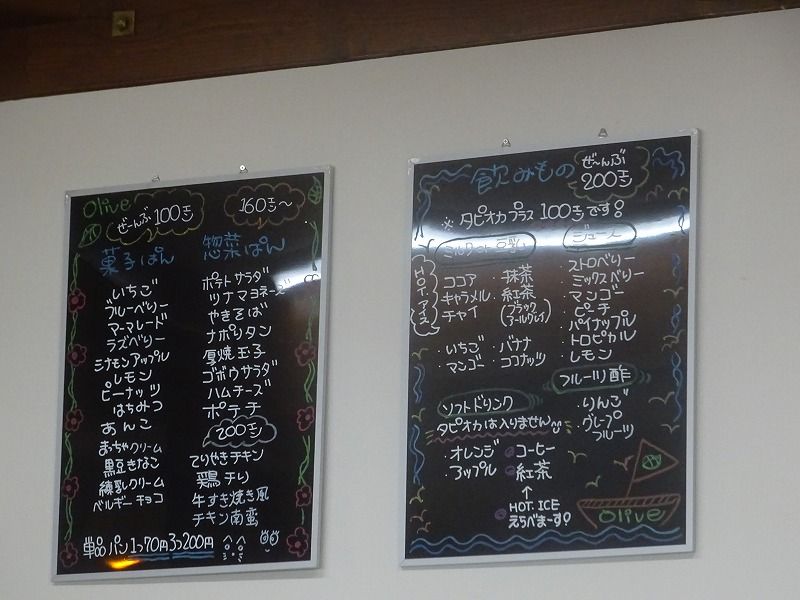 Olive
ぜーんぶ100エン
160エン〜
菓子ぱん
惣菜ぱん
いちご
ブルーベリー
マーマレード
ラズベリー
シナモンアップル
レモン
ピーナッツ
はちみつ
あんこ
まっちゃクリーム
黒豆きなこ
練乳クリーム
ベルギーチョコ
ポテトサラダ
ツナマヨネーズ
やきそば
ナポリタン
厚焼玉子
ゴボウサラダ
ハムチーズ
ポテチ
200エン
てりやきチキン
鶏チリ
牛すき焼き風
チキン南蛮
単品パン1つ70円3つ200円
飲みもの
ぜ〜んぶ
200エン
※タピオカプラス100エンです!
ミルクor豆乳
HOT.アイス
ココア
キャラメル
チャイ
・抹茶
・紅茶
(ブラック
アールグレイ)
・いちご
・マンゴー
・バナナ
・ココナッツ
ジュース
・ストロベリー
・ミックスベリー
・マンゴー
・ピーチ
・パイナップル
・トロピカル
・レモン
フルーツ酢
・りんご
・グレープ
フルーツ
ソフトドリンク
タピオカは入りません
・オレンジ
・アップル
コーヒー
紅茶
↑
HOT.ICE
えらべまーす!
Olive